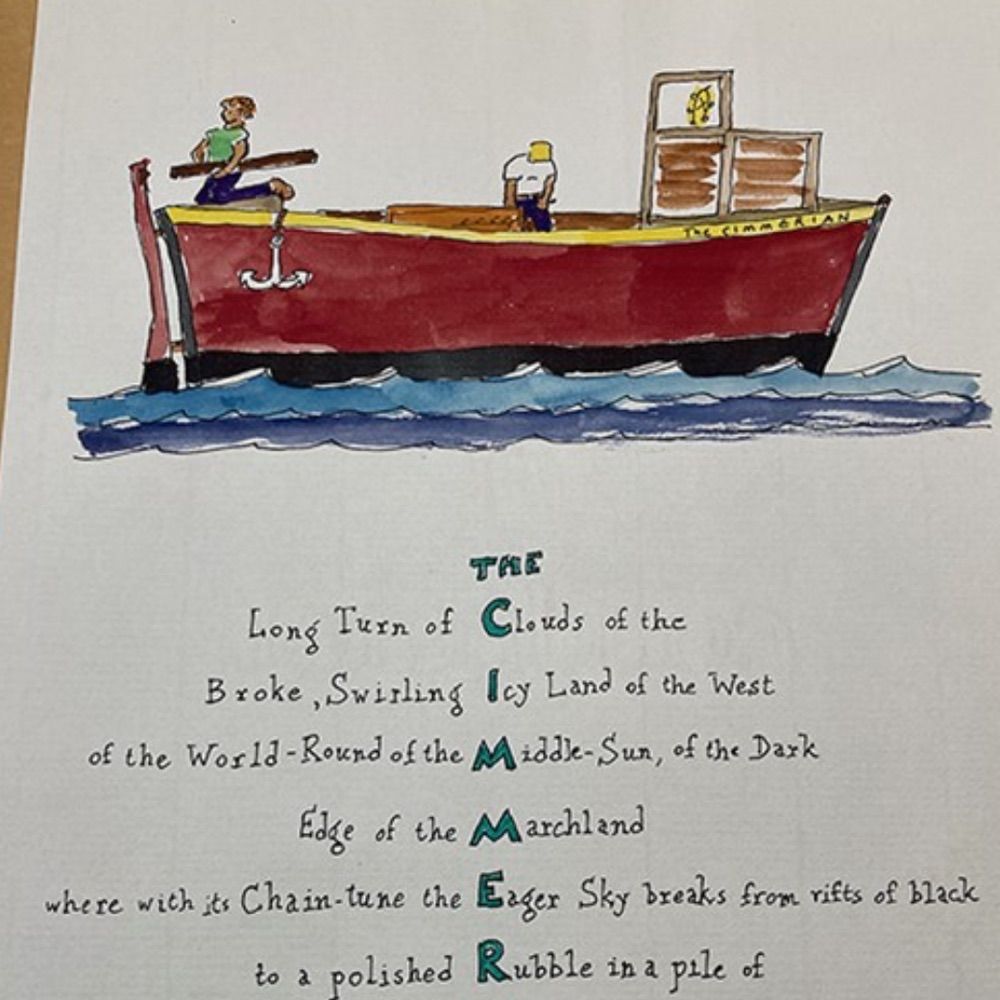 THE CIMMERIAN
THE
Long Turn of Clouds of the
Broke, Swirling Icy Land of the West
of the World-Round of the Middle-Sun, of the Dark
Edge of the Marchland
where with its Chain-tune the Eager Sky breaks from rifts of black
to a polished Rubble in a pile of